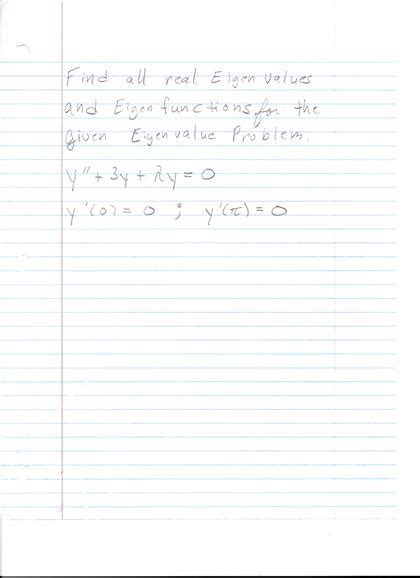 Find all real Eigen Values
and Eigen functions for the
given Eigenvalue Problem.
y'' + 3y + λy = 0
y'(0) = 0 ; y'(π) = 0